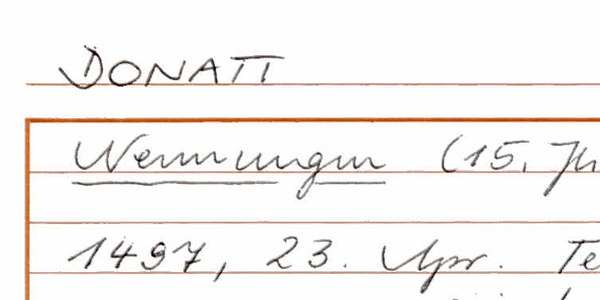 DONATI
Nennungen (15. Jh
1497, 23. Apr. Te